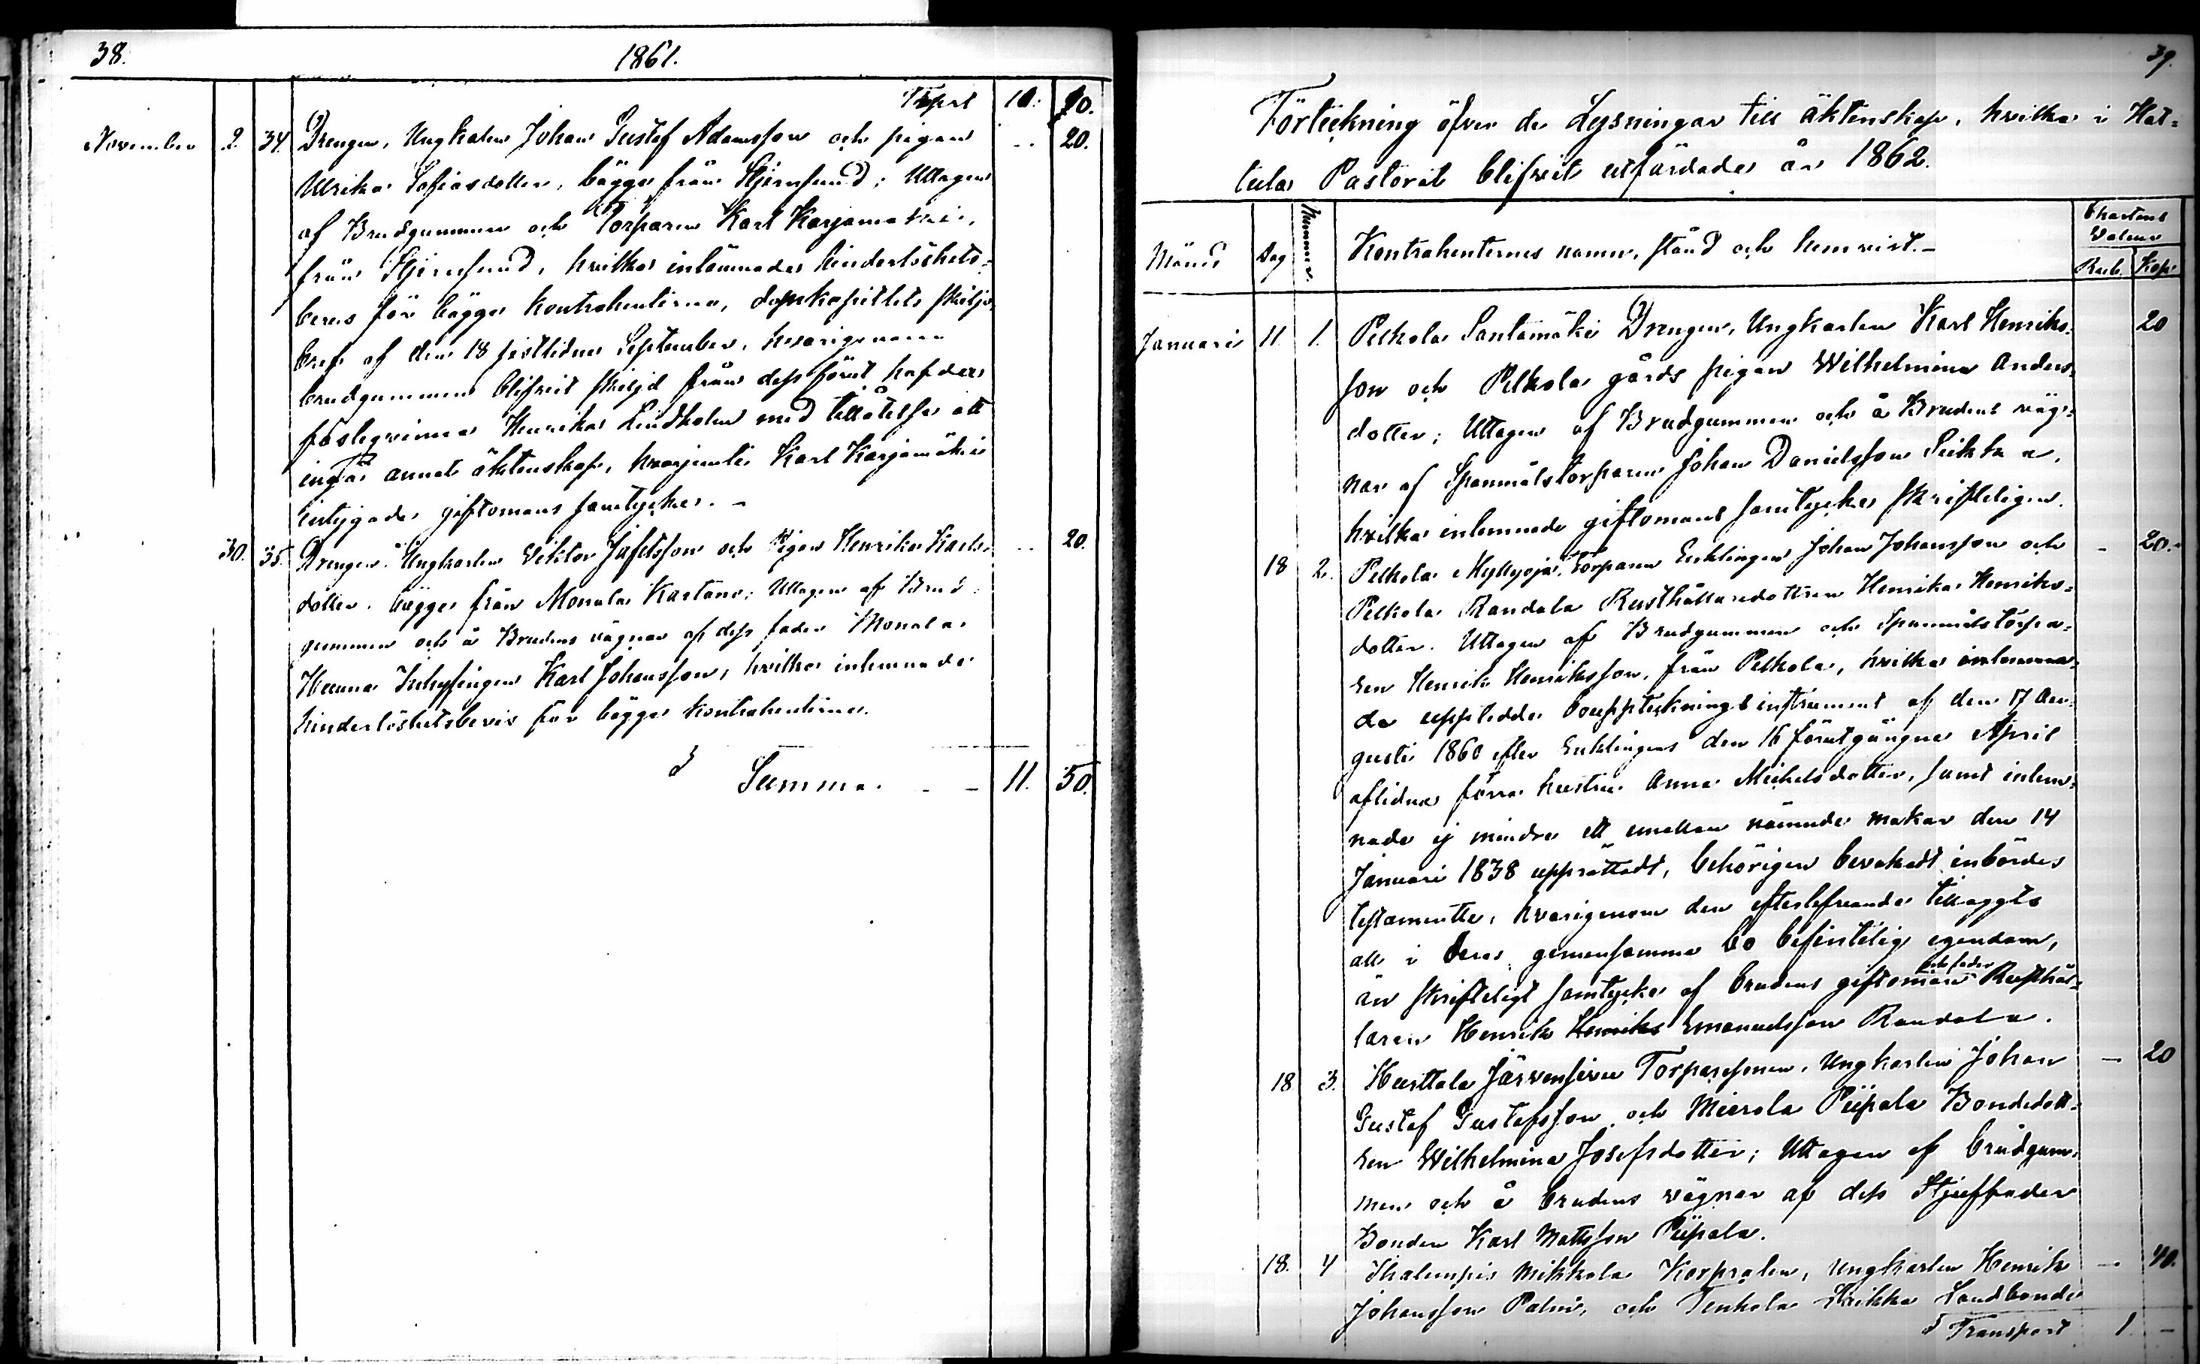 38.
1861.
Trsprt 11. 10.
November 2. 34. Drengen, Ungkarlen Johan Gustaf Adamsson och pigan .. 20.
Ulrika Sofiasdotter, bägge från Stjernsund; Uttagen
af Brudgummen och Torparen Karl Karjamäki,
från Stjernsund, hvilka inlämnade hinderlöshets=
bevis för bägge kontrahenterna, domkapitlets skiljo-
bref af den 18 sistlidne September, hvarigenom
brudgummen blifvit skiljd från dess förut hafda
fästeqvinna Henrika Lindholm med tillåtelse att
ingå annat äktenskap, hvarjemte Karl Karjamäki
intygade giftomans samtycke. -
30. 35. Drengen, Ungkarlen Viktor Jafetsson och Pigan Henrika Karls- .. 20.
dotter, bägge från Monala Kartano; Uttagen af Brud-
gummen och å Brudens vägnar af dess fader Monala
Hanna Inhysingen Karl Johansson, hvilka inlemnade
hinderlöshetsbevis för bägge kontrahenterna.
Summa. - - 11. 50.
39.
Förteckning öfver de Lysningar till äktenskap, hvilka i Hat=
tula Pastorat blifvit utfärdade år 1862.
Månad Dag Nummer. Kontrahenternes namn, stånd och hemvist. - Chartans Valeur
Rub. Kop.
Januari 11. 1. Pelkola Santamäki Drengen, Ungkarlen Karl Henriks- 20
son och Pelkola gårds pigan Wilhelmina Anders-
dotter; Uttagen af Brudgummen och å Brudens väg-
nar af Spanmålstorparen Johan Danielsson Seikka,
hvilka inlemnade giftomans samtycke skrifteligen.
18 2. Pelkola Myllyoja Torparen Enklingen Johan Johansson och - 20.
Pelkola Randala Rusthållaredottren Henrika Henriks-
dotter. Uttagen af Brudgummen och Spanmålstorpa-
ren Henrik Henriksson, från Pelkola, hvilka inlemna-
de uppstedde bouppteckningsinstrument af den 17 Au-
gusti 1860 efter Enklingens den 16 förutgångne April
aflidna förra hustru Anna Michelsdotter, samt inlem-
nade ej mindre ett emellan nämnde makar den 14
Januari 1838 upprättadt, behörigen bevakadt inbördes
testamente, hvarigenom den efterlefvande tillagts
all i deras gemensamma bo befintelig egendom,
än skrifteligt samtycke af brudens giftoman och fader Rusthål-
laren Henrik Henriks Emanuelsson Randala.
18 3. Hurttala Järvensivu Torparesonen, Ungkarlen Johan - 20
Gustaf Gustafsson och Mierola Piipala Bondedott-
ren Wilhelmina Josefsdotter; Uttagen af brudgum-
men och å brudens vägnar af dess Stjuffader
Bonden Karl Mattsson Piipala.
18. 4 Ihalempi Mikkola Korpralen, Ungkarlen Henrik - 40.
Johansson Palm, och Tenhola Krikka Landbonde
Transport 1. -